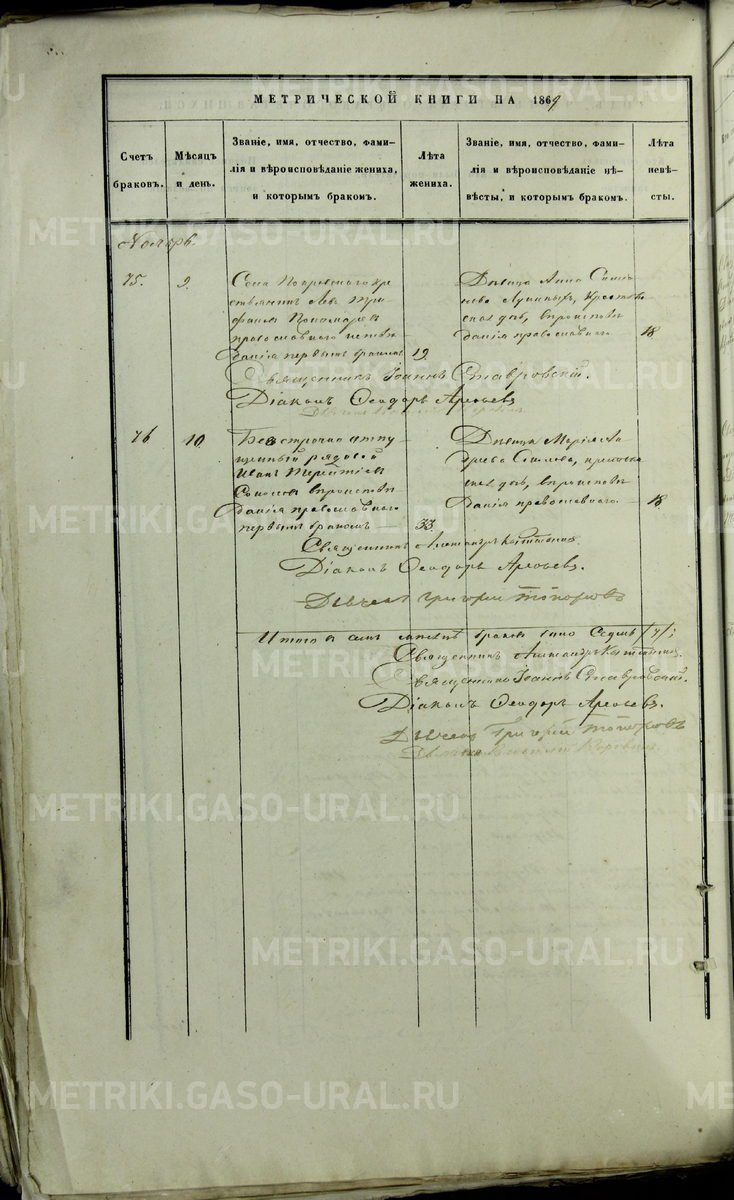 МЕТРИЧЕСКОЙ КНИГИ НА 1869
Счетъ браковъ.
Мѣсяцъ и день.
Званіе, имя, отчество, фами-
лія и вѣроисповѣданіе жениха,
и которымъ бракомъ.
Лѣта жениха.
Званіе, имя, отчество, фами-
лія и вѣроисповѣданіе нѣ-
вѣсты, и которымъ бракомъ.
Лѣта невѣ-
сты.
Ноябрь
75. 9.
Села Покровскаго кре
стьянинъ Левъ Три
фановъ Пономаревъ
православнаго исповѣ
данія первымъ бракомъ 19.
Дѣвица Анна Симео
нова
дочь, вѣроисповѣ
данія православнаго 18
Священникъ Іоаннъ Ставровскій.
Діаконъ Ѳеодоръ Арефьевъ
76 10.
Безсрочно отпу
щенный рядовой
Иванъ Терентіевъ
Соколовъ вѣроисповѣ
данія православнаго
первымъ бракомъ 33.
Дѣвица Марія
дочь, вѣроисповѣ
данія православнаго 18
Священникъ Александръ
Діаконъ Ѳеодоръ Арефьевъ.
Дьячекъ Григорій Топорковъ
Итого въ семъ мѣсяцѣ браковъ было Седмь (7):
Священникъ Александръ
Священникъ Іоаннъ Ставровскій.
Діаконъ Ѳеодоръ Арефьевъ.
Дьячекъ Григорій Топорковъ
METRIKI.GASO-URAL.RU